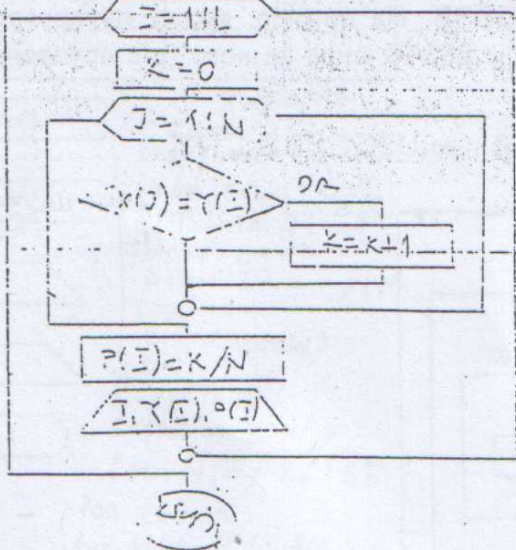 I=1,1,L
K=0
J=1,1,N
X(J)=Y(I)
DA
K=K+1
P(I)=K/N
I,Y(I),P(I)